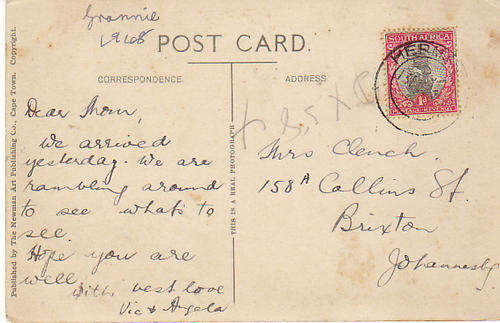 Grannie
POST CARD.
CORRESPONDENCE
ADDRESS
SOUTH AFRICA
HER
1D
Dear Mom,
We arrived
yesterday. We are
rambling around
to see what's to
see.
Hope you are
well.
With best love
Vic & Angela
THIS IS A REAL PHOTOGRAPH
Mrs Clench.
158A Collins St.
Brixton
Johannesbg
Published by The Newman Art Publishing Co., Cape Town. Copyright.